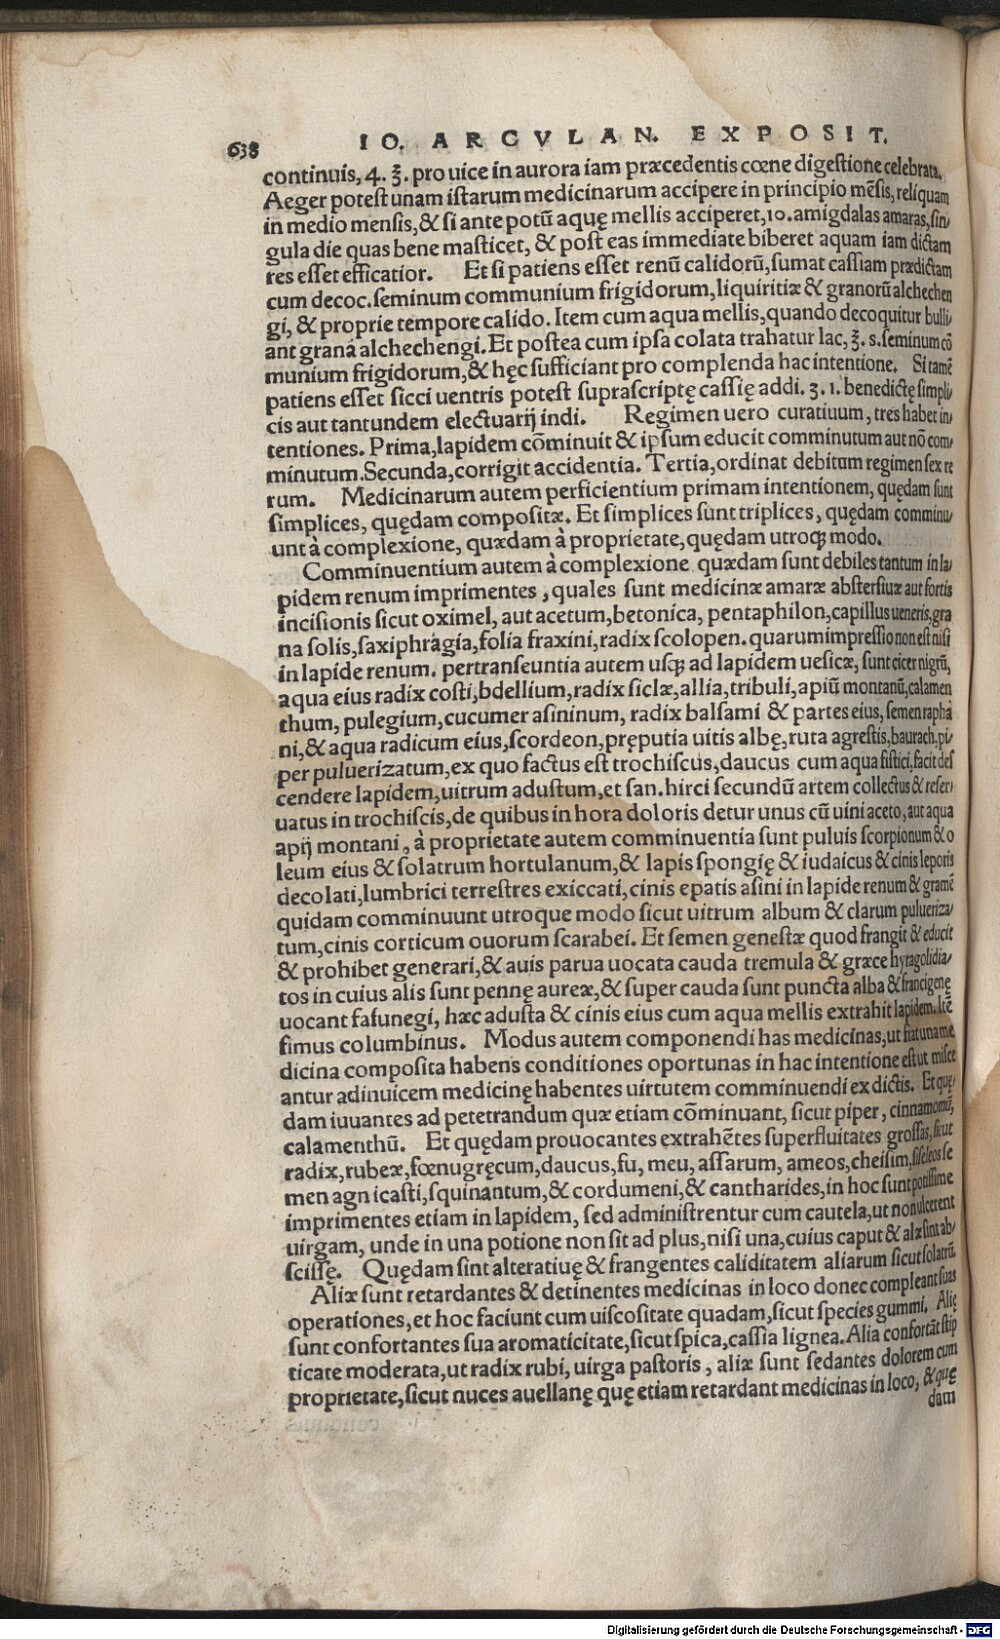 638 IO. ARCVLAN. EXPOSIT.
continuis, 4. ℥. pro uice in aurora iam præcedentis cœne digestione celebrata.
Aeger potest unam istarum medicinarum accipere in principio mẽsis, reliquam
in medio mensis, & si ante potũ aquę mellis acciperet, 10. amigdalas amaras, sin⸗
gula die quas bene masticet, & post eas immediate biberet aquam iam dictam
res esset efficatior. Et si patiens esset renũ calidorũ, sumat cassiam prædictam
cum decoc. seminum communium frigidorum, liquiritiæ & granorũ alchechen
gi, & proprie tempore calido. Item cum aqua mellis, quando decoquitur bulli⸗
ant grana alchechengi. Et postea cum ipsa colata trahatur lac, ℥. s. seminum cõ
munium frigidorum, & hęc sufficiant pro complenda hac intentione. Si tamẽ
patiens esset sicci uentris potest suprascriptę cassię addi. ʒ. 1. benedictę simpli⸗
cis aut tantundem electuarij indi. Regimen uero curatiuum, tres habet in⸗
tentiones. Prima, lapidem cõminuit & ipsum educit comminutum aut nõ com⸗
minutum. Secunda, corrigit accidentia. Tertia, ordinat debitum regimen sex re
rum. Medicinarum autem perficientium primam intentionem, quędam sunt
simplices, quędam compositæ. Et simplices sunt triplices, quędam comminu⸗
unt à complexione, quædam à proprietate, quędam utroq; modo.
Comminuentium autem à complexione quædam sunt debiles tantum in la⸗
pidem renum imprimentes, quales sunt medicinæ amaræ abstersiuæ aut fortis
incisionis sicut oximel, aut acetum, betonica, pentaphilon, capillus ueneris, gra
na solis, saxiphragia, folia fraxini, radix scolopen. quarum impressio non est nisi
in lapide renum. pertranseuntia autem usq; ad lapidem uesicæ, sunt cicer nigrũ,
aqua eius radix costi, bdellium, radix siclæ, allia, tribuli, apiũ montanũ, calamen
thum, pulegium, cucumer asininum, radix balsami & partes eius, semen rapha
ni, & aqua radicum eius, scordeon, pręputia uitis albę, ruta agrestis, baurach, pi⸗
per puluerizatum, ex quo factus est trochiscus, daucus cum aqua fistici, facit des
cendere lapidem, uitrum adustum, et san. hirci secundũ artem collectus & reser⸗
uatus in trochiscis, de quibus in hora doloris detur unus cũ uini aceto, aut aqua
apij montani, à proprietate autem comminuentia sunt puluis scorpionum & o
leum eius & solatrum hortulanum, & lapis spongię & iudaicus & cinis leporis
decolati, lumbrici terrestres exiccati, cinis epatis asini in lapide renum & gramẽ
quidam comminuunt utroque modo sicut uitrum album & clarum pulueriza⸗
tum, cinis corticum ouorum scarabei. Et semen genestæ quod frangit & educit
& prohibet generari, & auis parua uocata cauda tremula & græce hyragolidia⸗
tos in cuius alis sunt pennę aureæ, & super cauda sunt puncta alba & francigenę
uocant fafunegi, hæc adusta & cinis eius cum aqua mellis extrahit lapidem. Itẽ
fimus columbinus. Modus autem componendi has medicinas, ut fiat una me
dicina composita habens conditiones oportunas in hac intentione est ut misce
antur adinuicem medicinę habentes uirtutem comminuendi ex dictis. Et quę⸗
dam iuuantes ad petetrandum quæ etiam cõminuant, sicut piper, cinnamomũ,
calamenthũ. Et quędam prouocantes extrahẽtes superfluitates grossas, sicut
radix, rubeæ, fœnugręcum, daucus, fu, meu, assarum, ameos, cheisim, siseleos se
men agn icasti, squinantum, & cordumeni, & cantharides, in hoc sunt potissime
imprimentes etiam in lapidem, sed administrentur cum cautela, ut non ulcerent
uirgam, unde in una potione non sit ad plus, nisi una, cuius caput & alæ sint ab⸗
scissę. Quędam sint alteratiuę & frangentes caliditatem aliarum sicut solatrũ.
Aliæ sunt retardantes & detinentes medicinas in loco donec compleant suas
operationes, et hoc faciunt cum uiscositate quadam, sicut species gummi. Alię
sunt confortantes sua aromaticitate, sicut spica, cassia lignea. Alia confortãt stip
ticate moderata, ut radix rubi, uirga pastoris, aliæ sunt sedantes dolorem cum
proprietate, sicut nuces auellanę quę etiam retardant medicinas in loco, & quę
dam
Digitalisierung gefördert durch die Deutsche Forschungsgemeinschaft - DFG